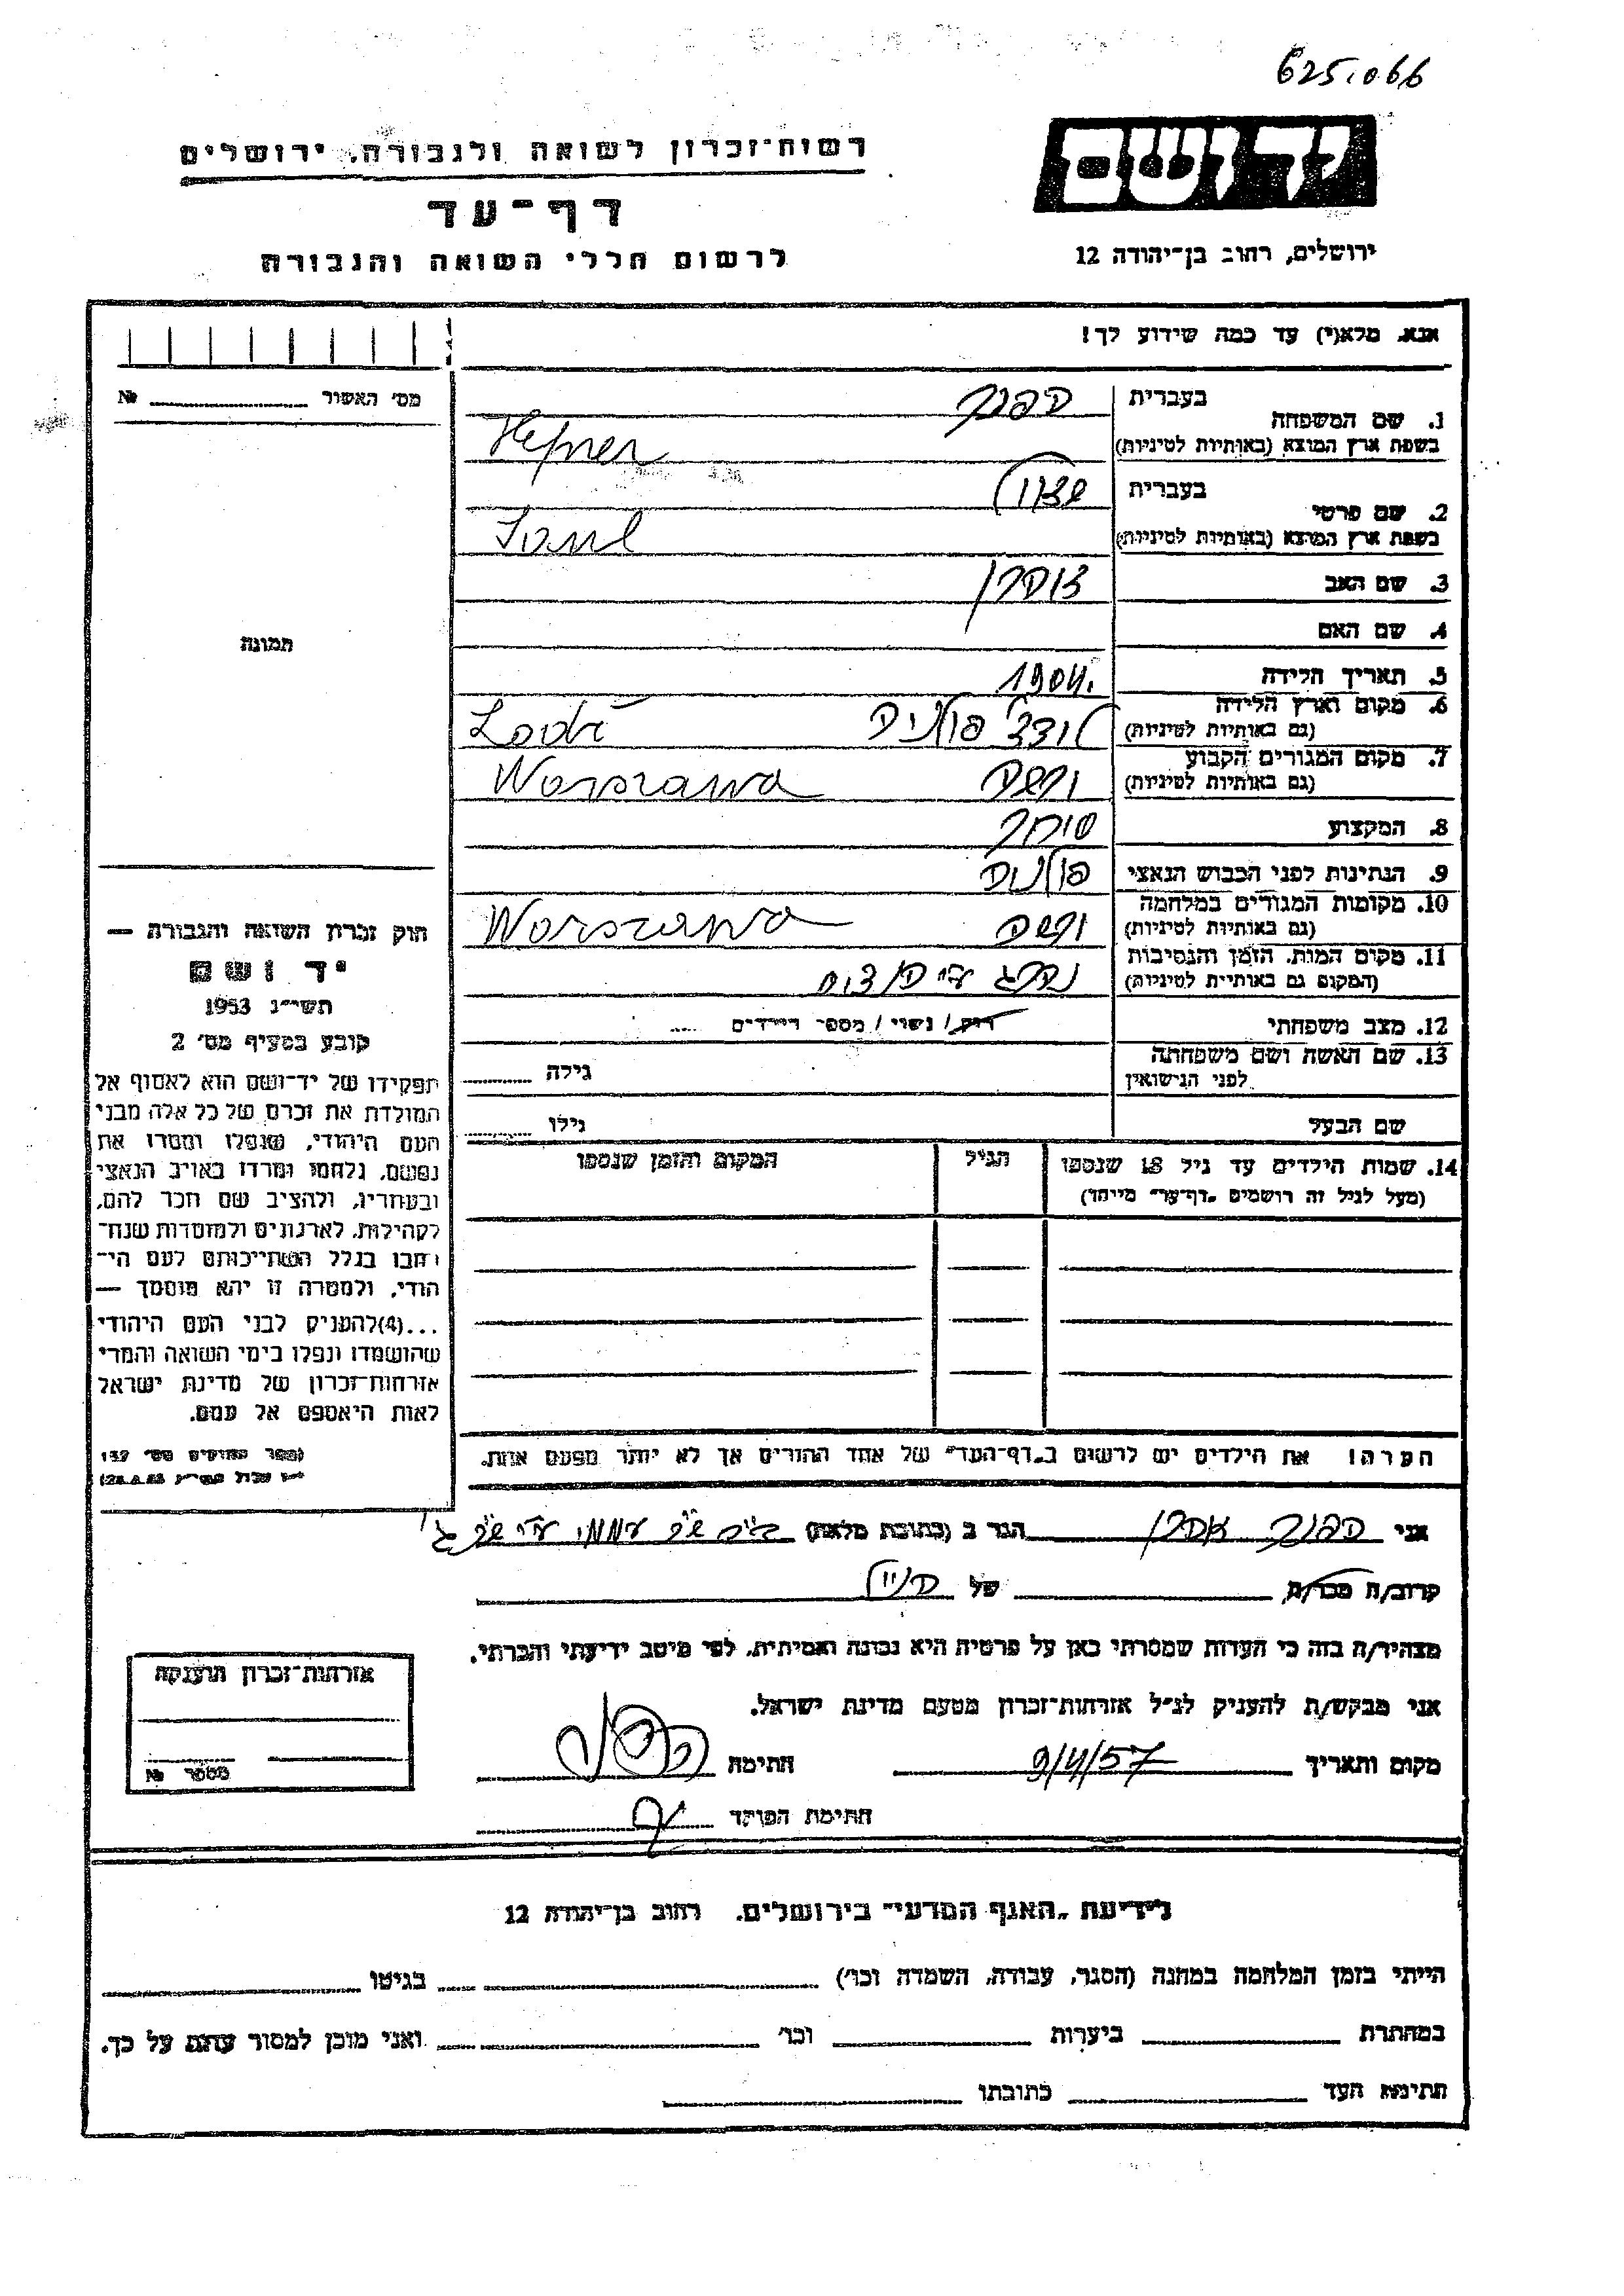 625.066
רשות־זכרון לשואה ולגבורה. ירושלים
יד ושם
דף־עד
לרשום חללי השואה והגבורה
ירושלים, רחוב בן־יהודה 12
אנא. מלא(י) עד כמה שידוע לך!
מס' האשור № 
1. שם המשפחה
בעברית הפנר
בשפת ארץ המוצא (באותיות לטיניות) Hefner
2. שם פרטי
בעברית שאול
בשפת ארץ המוצא (באותיות לטיניות)
3. שם האב אהרן
4. שם האם
5. תאריך הלידה 1904.
6. מקום וארץ הלידה
(גם באותיות לטיניות) לודז' פולניה Lodź
7. מקום המגורים הקבוע
(גם באותיות לטיניות) ורשה Warszawa
8. המקצוע סוחר
9. הנתינות לפני הכבוש הנאצי פולניה
10. מקומות המגורים במלחמה
(גם באותיות לטיניות) ורשה Warszawa
11. מקום המות. הזמן והנסיבות
(המקום גם באותיות לטיניות) נהרג ע"י
12. מצב משפחתי רוק/ נשוי / מספר הילדים
13. שם האשה ושם משפחתה
לפני הנישואין גילה
שם הבעל גילו
14. שמות הילדים עד גיל 18 שנספו הגיל המקום והזמן שנספו
(מעל לגיל זה רושמים „דף־עד" מיוחד)
הערה! את הילדים יש לרשום ב„דף־העד" של אחד ההורים אך לא יותר מפעם אחת.
תמונה
חוק זכרון השואה והגבורה —
יד ושם
תשי"ג 1953
קובע בסעיף מס' 2
תפקידו של יד־ושם הוא לאסוף אל
המולדת את זכרם של כל אלה מבני
העם היהודי, שנפלו ומסרו את
נפשם, נלחמו ומרדו באויב הנאצי
ובעוזריו, ולהציב שם וזכר להם,
לקהילות, לארגונים ולמוסדות שנח־
רבו בגלל השתייכותם לעם הי־
הודי, ולמטרה זו יהא מוסמך —
...(4)להעניק לבני העם היהודי
שהושמדו ונפלו בימי השואה והמרי
אזרחות־זכרון של מדינת ישראל
לאות היאספם אל עמם.
(ספר החוקים מס' 132
אני הפנר אהרן הגר ב (כתובת מלאה)
קרוב/ה מכר/ה של
מצהיר/ה בזה כי העדות שמסרתי כאן על פרטיה היא נכונה ואמיתית. לפי מיטב ידיעתי והכרתי.
אני מבקש/ת להעניק לנ"ל אזרחות־זכרון מטעם מדינת ישראל.
מקום ותאריך 9/4/57 חתימה
חתימת הפוקד
אזרחות־זכרון הוענקה
מספר №
לידיעת „האגף המדעי" בירושלים. רחוב בן־יהודה 12
הייתי בזמן המלחמה במחנה (הסגר, עבודה, השמדה וכו') בגיטו
במחתרת ביערות וכו' ואני מוכן למסור עדות על כך.
חתימת העד כתובתו